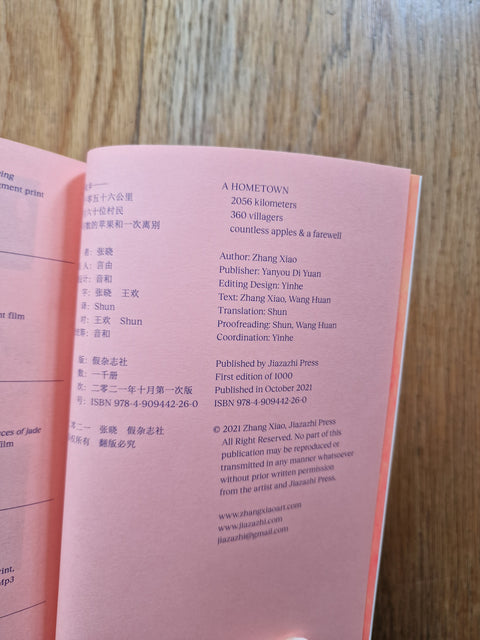 ving
gment print
nt film
ces of Jade
film
rint,
Mp3
零五十六公里
六十位村民
数的苹果和一次离别
者：张晓
人：言由
设计：音和
字：张晓 王欢
译：Shun
对：王欢 Shun
统筹：音和
版：假杂志社
数：一千册
次：二零二一年十月第一次版
号：ISBN 978-4-909442-26-0
零二一 张晓 假杂志社
权所有 翻版必究
A HOMETOWN
2056 kilometers
360 villagers
countless apples & a farewell
Author: Zhang Xiao
Publisher: Yanyou Di Yuan
Editing Design: Yinhe
Text: Zhang Xiao, Wang Huan
Translation: Shun
Proofreading: Shun, Wang Huan
Coordination: Yinhe
Published by Jiazazhi Press
First edition of 1000
Published in October 2021
ISBN 978-4-909442-26-0
© 2021 Zhang Xiao, Jiazazhi Press.
All Right Reserved. No part of this
publication may be reproduced or
transmitted in any manner whatsoever
without prior written permission
from the artist and Jiazazhi Press.
www.zhangxiaoart.com
www.jiazazhi.com
jiazazhi@gmail.com